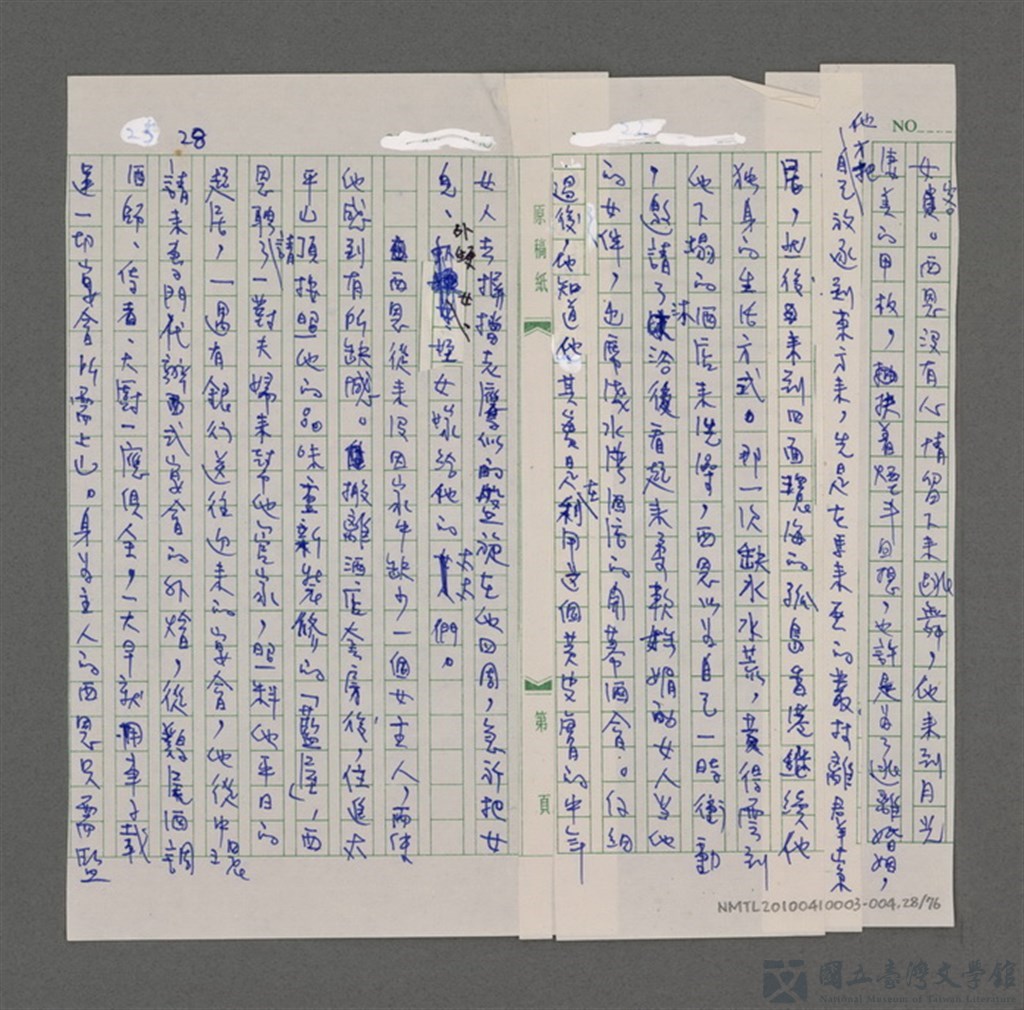 NO
女賓。西恩沒有心情留下來跳舞,他來到月光
淒美的甲板,扶着煙斗回想,也許是為了逃離婚姻,
他才把自己放逐到東方來,先是在東來亞的叢林離群索
居,然後再來到四面環海的孤島香港繼續他
獨身的生活方式。那一次缺水水荒,黃得雲到
他下塌的酒店來洗澡,西恩以為自己一時衝動
,邀請了沐浴後看起來柔軟嫵媚的女人當他
的女伴,也席淺水灣酒店的開幕酒會。仔細
過後,他知道他其實是在利用這個黃皮膚的中年
原稿紙
第 頁
28
女人去擋去鷹似的盤旋在他四周,急於把女
兒、外甥女、姪女嫁給他的丈夫們。
西恩從來沒因家中缺少一個女主人,而使
他感到有所缺憾。搬離酒店套房後,住進太
平山頂按照他的品味重新裝修的「藍屋」,西
恩聘請一對夫婦來幫他管家,照料他平日的
起居,一遇有銀行送往迎來的宴會,他從中環
請來專門代辦西式宴會的外燴,從雞尾酒調
酒師、侍者、大廚一應俱全,一大早就用車子載
運一切宴會所需上山。身為主人的西恩只需監
NMTL20100410003-004.28/76
國立臺灣文學館
National Museum of Taiwan Literature